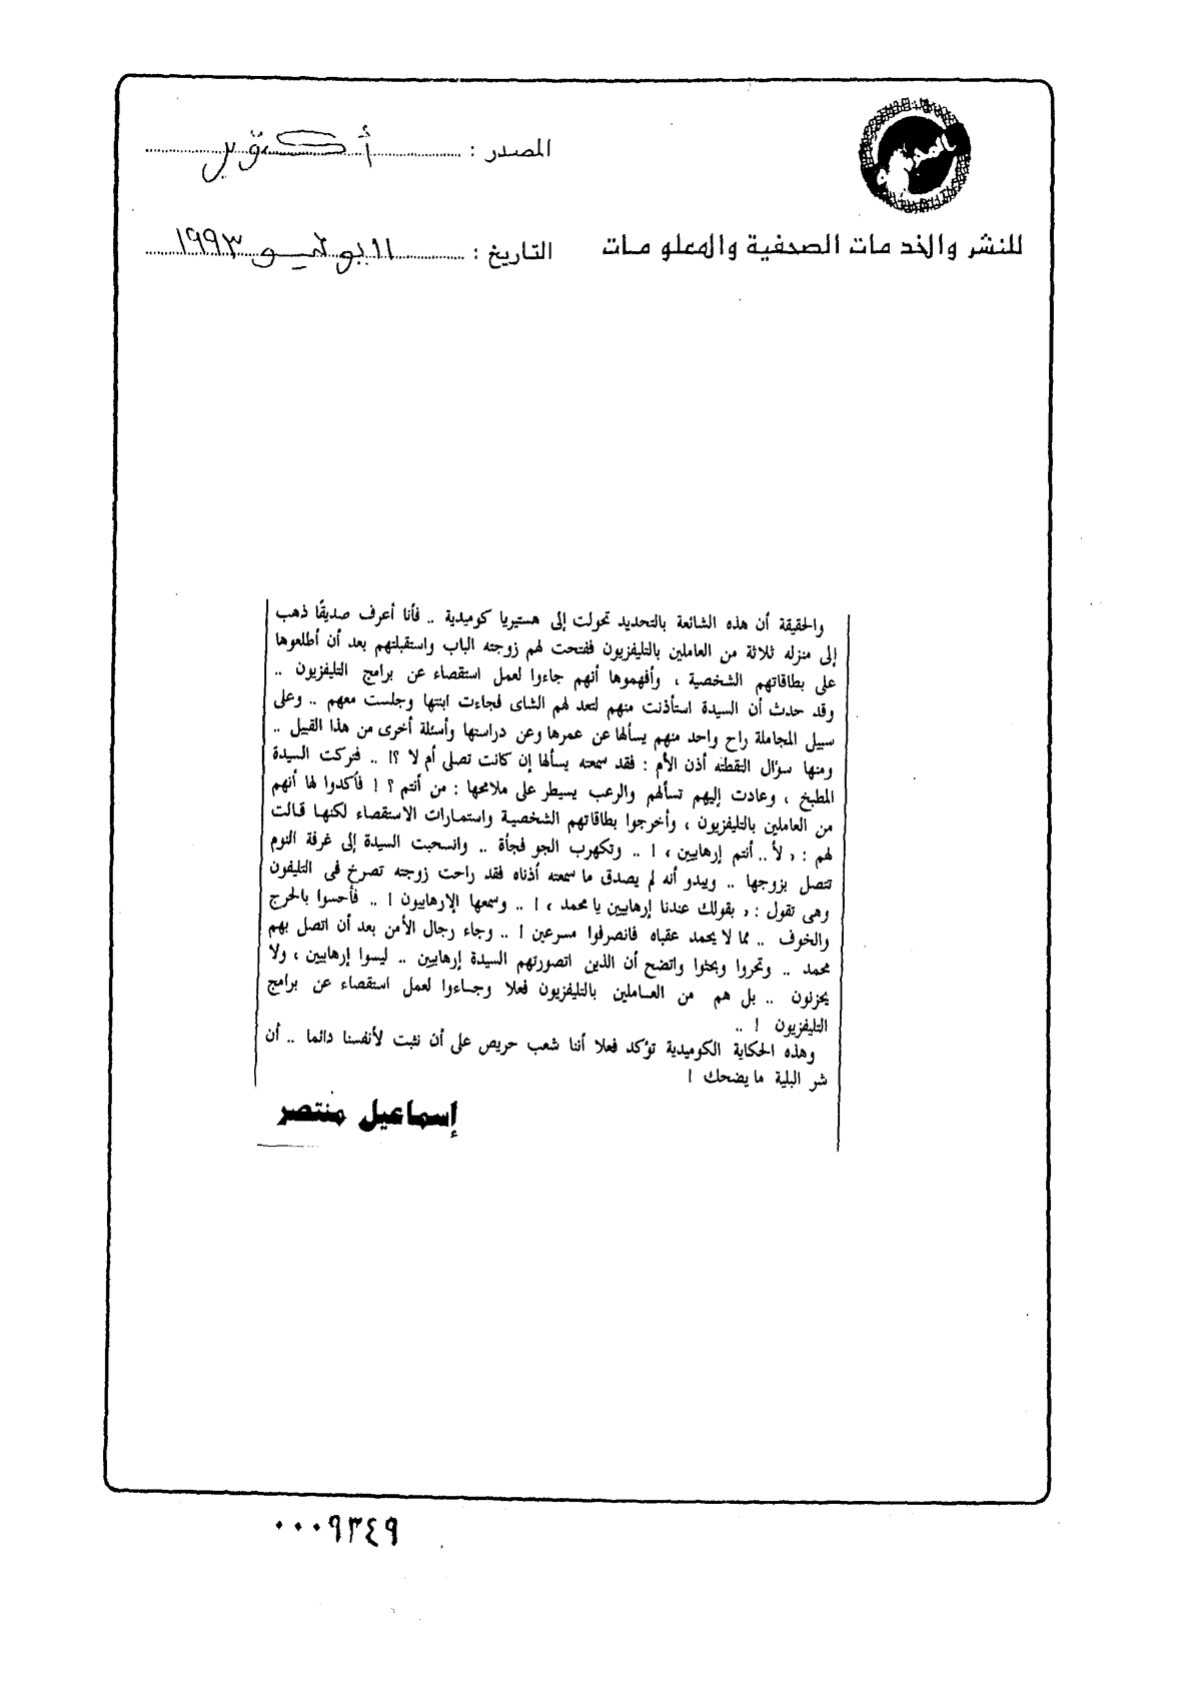 المصدر : أكتوبر
للنشر والخدمات الصحفية والمعلومات
التاريخ : ١١ يوليو ١٩٩٣
والحقيقة أن هذه الشائعة بالتحديد تحولت إلى هستيريا كوميدية .. فأنا أعرف صديقًا ذهب
إلى منزله ثلاثة من العاملين بالتليفزيون ففتحت لهم زوجته الباب واستقبلتهم بعد أن أطلعوها
على بطاقاتهم الشخصية ، وأفهموها أنهم جاءوا لعمل استقصاء عن برامج التليفزيون ..
وقد حدث أن السيدة استأذنت منهم لتعد لهم الشاى فجاءت ابنتها وجلست معهم .. وعلى
سبيل المجاملة راح واحد منهم يسألها عن عمرها وعن دراستها وأسئلة أخرى من هذا القبيل ..
ومنها سؤال التقطته أذن الأم : فقد سمعته يسألها إن كانت تصلى أم لا ؟! .. فتركت السيدة
المطبخ ، وعادت إليهم تسألهم والرعب يسيطر على ملامحها : من أنتم ؟ ! فأكدوا لها أنهم
من العاملين بالتليفزيون ، وأخرجوا بطاقاتهم الشخصية واستمارات الاستقصاء لكنها قالت
لهم : « لأ .. أنتم إرهابيين » ! .. وتكهرب الجو فجأة .. وانسحبت السيدة إلى غرفة النوم
تتصل بزوجها .. ويبدو أنه لم يصدق ما سمعته أذناه فقد راحت زوجته تصرخ فى التليفون
وهى تقول : « بقولك عندنا إرهابيين يا محمد » ! .. وسمعها الإرهابيون ! .. فأحسوا بالحرج
والخوف .. مما لا يحمد عقباه فانصرفوا مسرعين ! .. وجاء رجال الأمن بعد أن اتصل بهم
محمد .. وتحروا وبحثوا واتضح أن الذين اتصورتهم السيدة إرهابيين .. ليسوا إرهابيين ، ولا
يحزنون .. بل هم من العاملين بالتليفزيون فعلا وجاءوا لعمل استقصاء عن برامج
التليفزيون ! ..
وهذه الحكاية الكوميدية تؤكد فعلا أننا شعب حريص على أن نثبت لأنفسنا دائما .. أن
شر البلية ما يضحك !
إسماعيل منتصر
٠٠٠٩٣٤٩